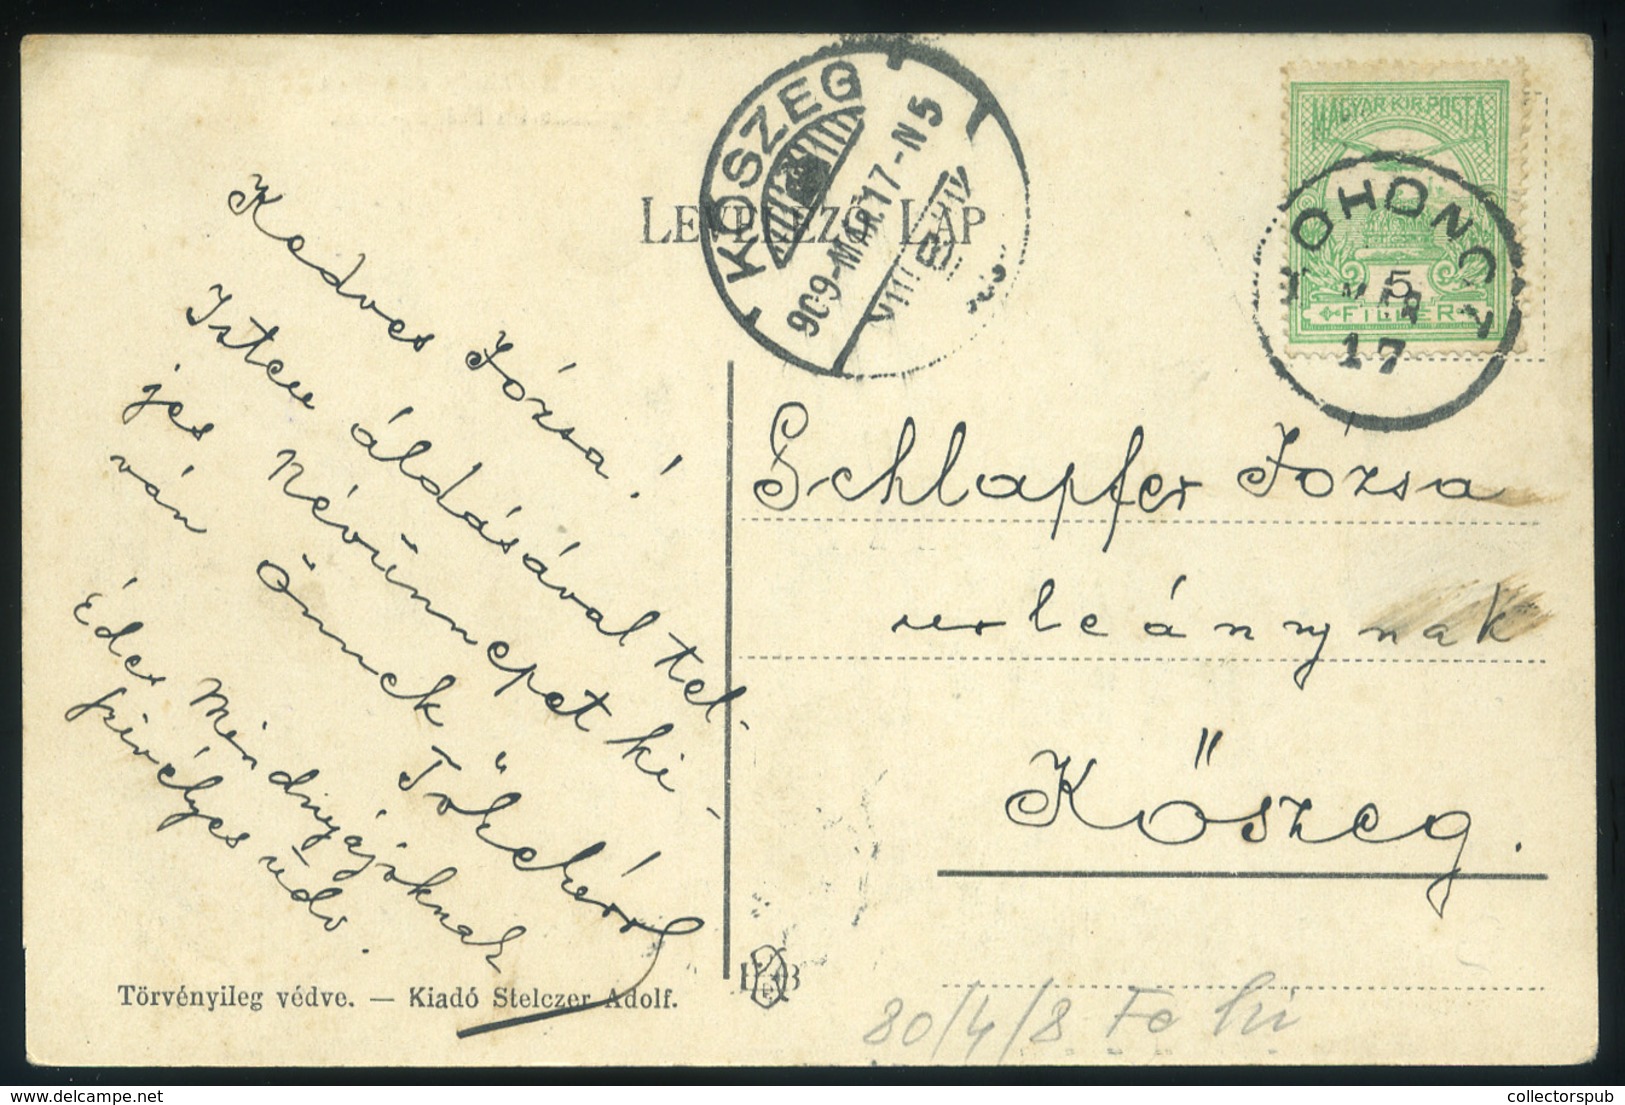 LEVELEZŐ LAP
KŐSZEG
909-MÁR.17-N5
MAGYAR KIR. POSTA
5
FILLÉR
ROHONCZ
MÁR
17
Kedves Józsa!
Isten áldásával tel-
jes Névünnepet ki-
ván Önnek
Édes Mindnyájóknak
szivélyes üdv.
Schlapfer Józsa
urleánynak
Kőszeg.
Törvényileg védve. — Kiadó Stelczer Adolf.
80/4/8
collectorspub